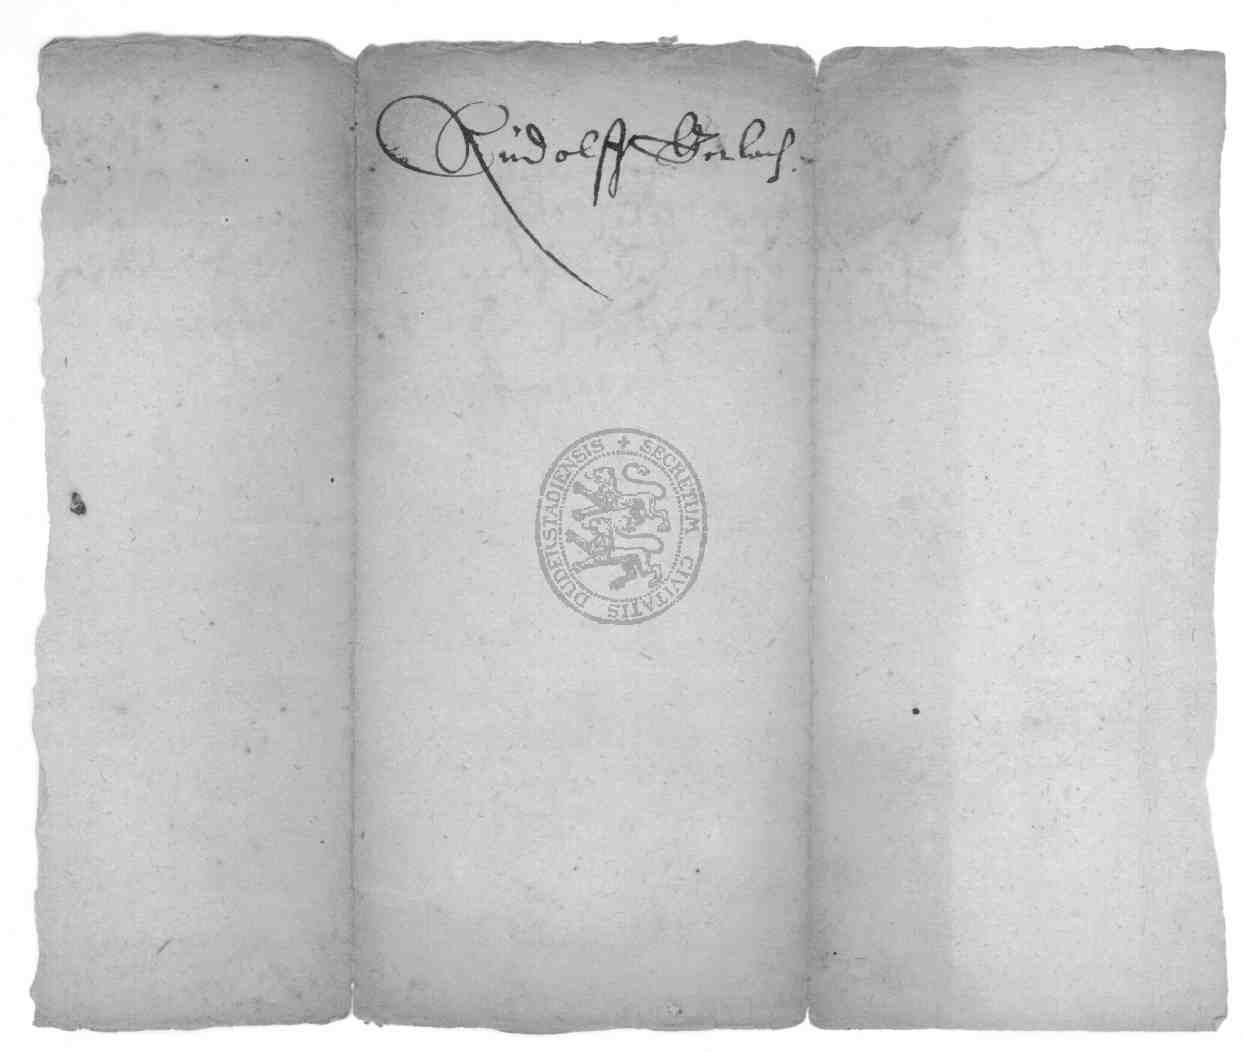 Rudolff Gerlach.
SECRETUM CIVITATIS DUDERSTADIENSIS +